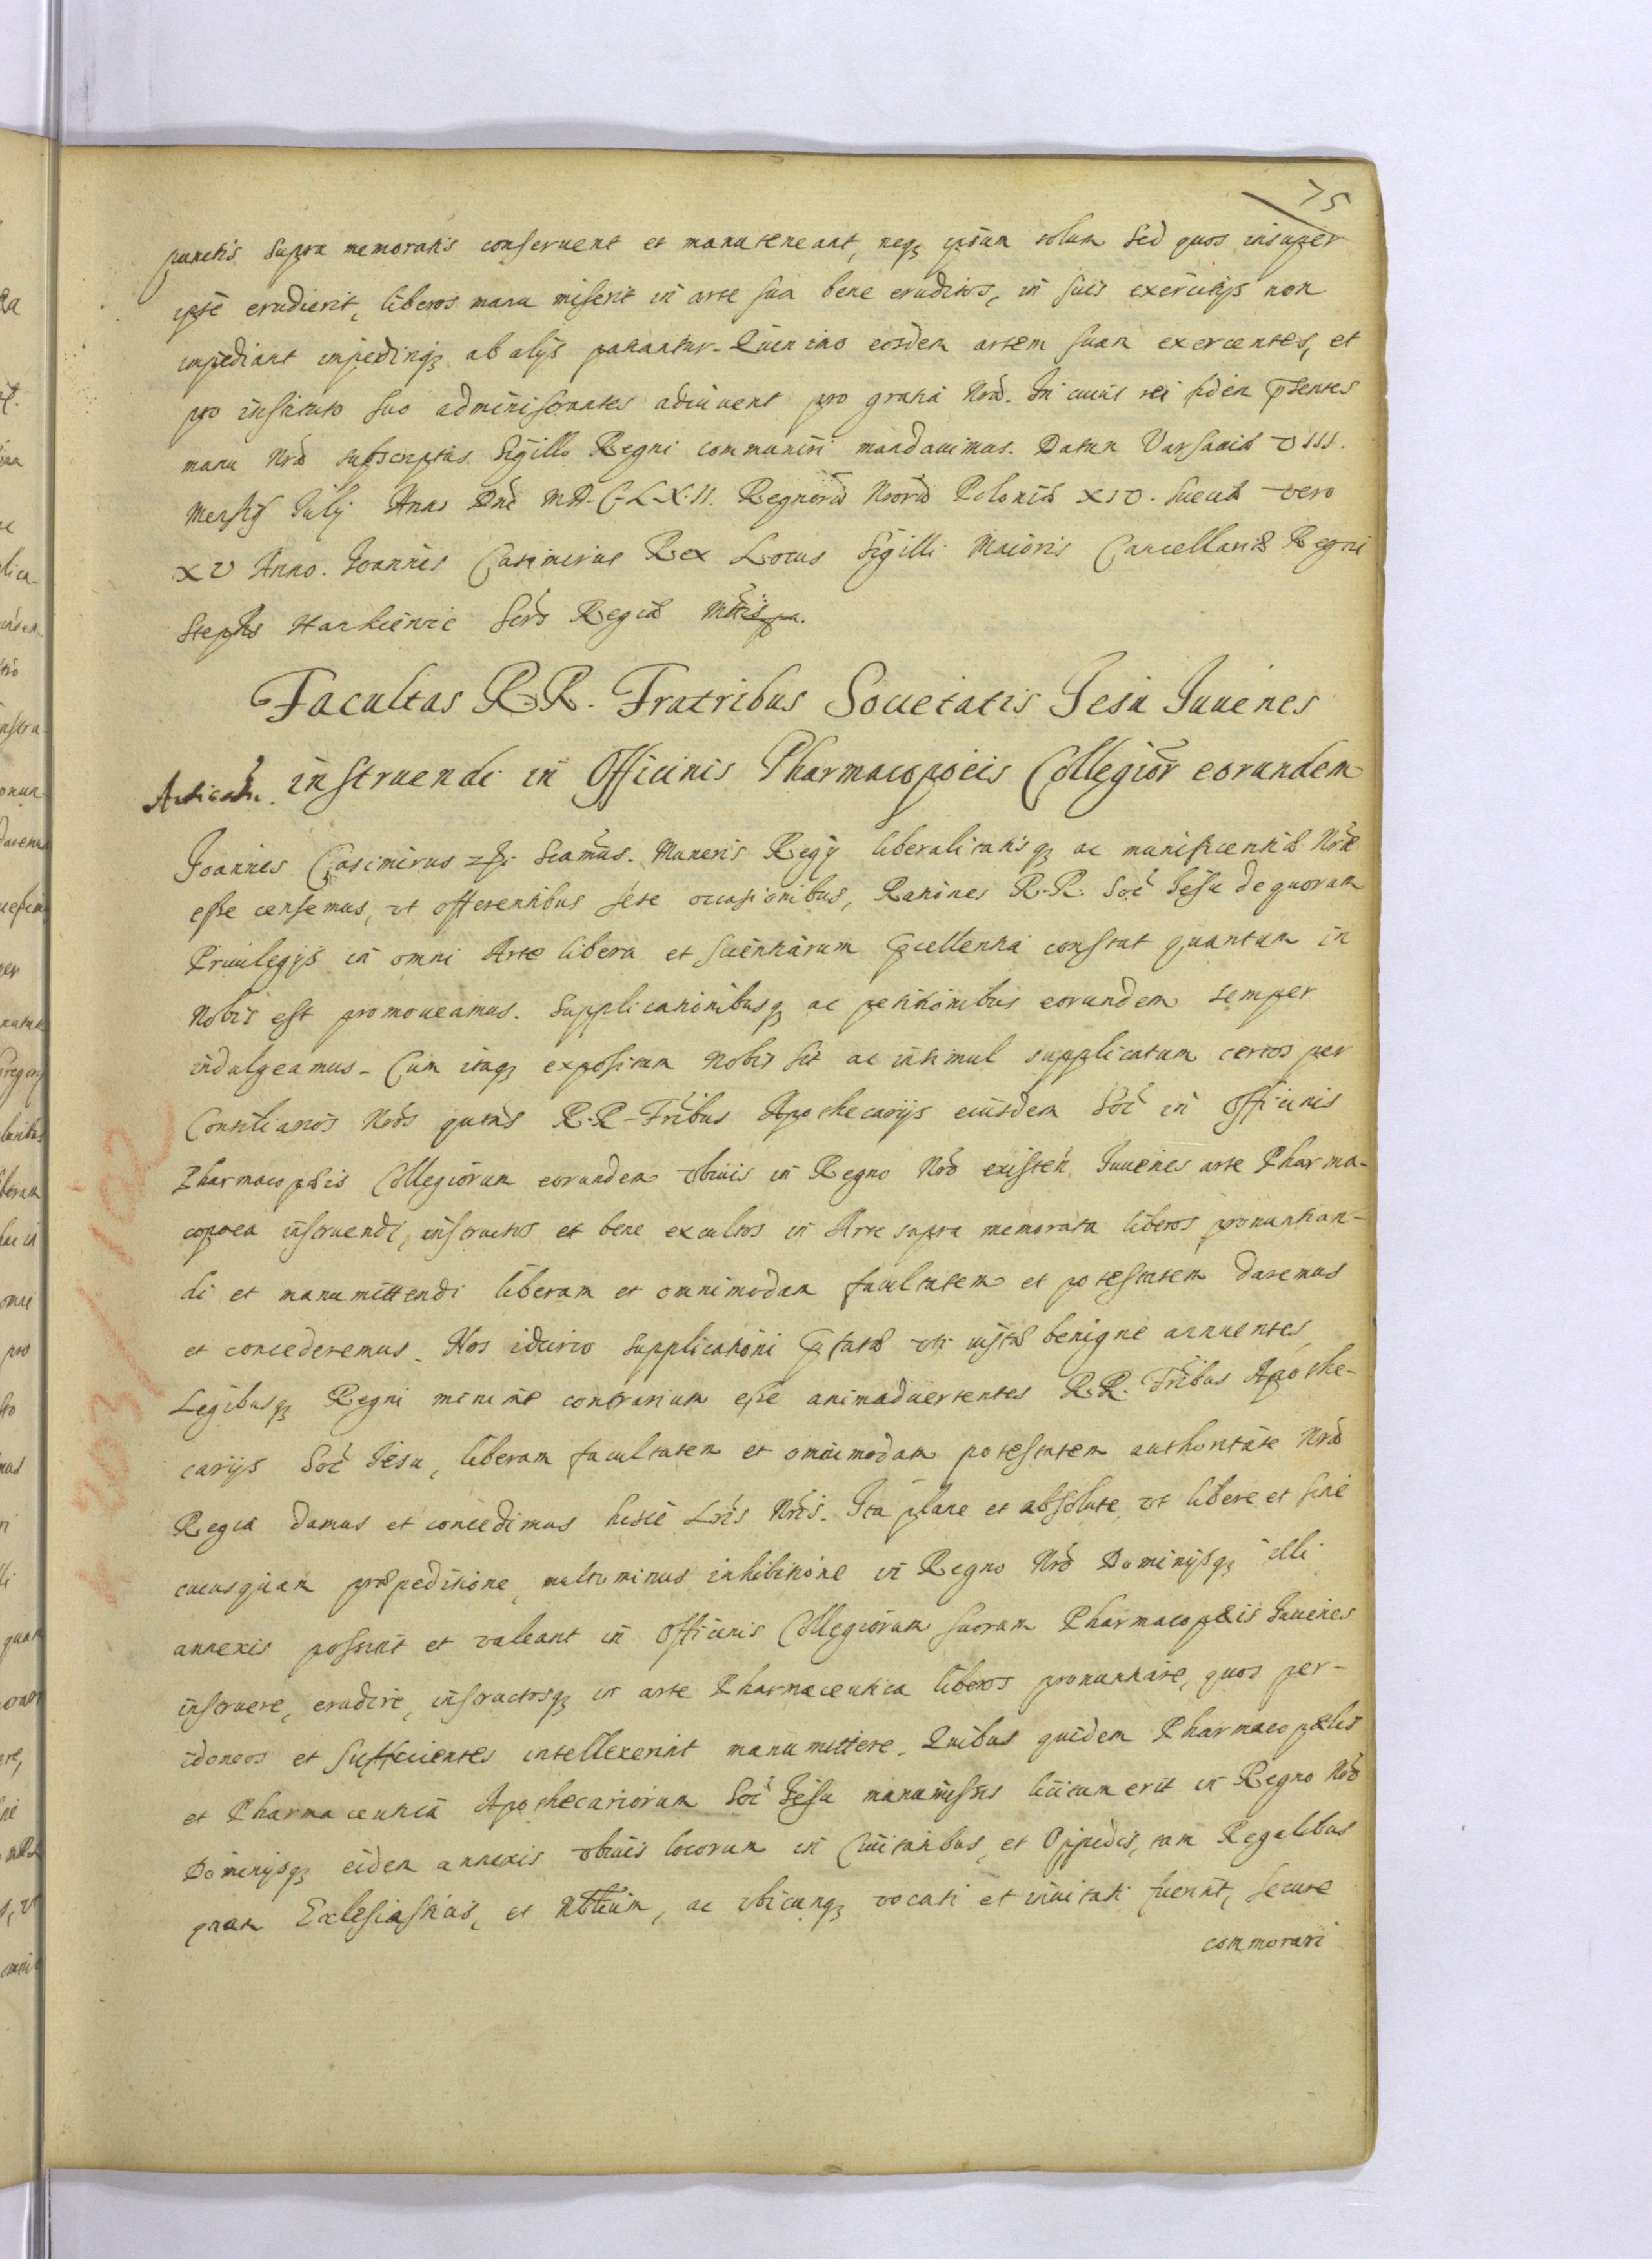 75
punctis supra memoratis conseruent et manuteneant, neq₃ ipsum solum sed quos insuper
ipse erudierit, liberos manu miserit in arte sua bene eruditos, in suis exercitijs non
impediant impediriq₃ ab alijs patiantur. Quin imo eosdem artem suam exercentes, et
pro instituto suo administrantes adiuuent pro gratia Nrã. In cuius rei fidem p̃sentes
manu Nrã subscriptas Sigillo Regni communiri mandauimus. Datum Varsauiæ VIII.
Mensis Julij Anno Dni M.D.C.L.X.II. Regnorũ Nrorũ Poloniæ XIV. Sueciæ vero
XV Anno. Joannes Casimirus Rex Locus Sigilli Maioris Cancellariæ Regni
Stephs Hankiewic Secrs Regiæ Mttis pa.
Facultas R.R. Fratribus Societatis Jesu Juuenes
instruendi in Officinis Pharmacopoeis Collegior̃ eorundem
Joannes Casimirus etc. Scamus. Muneris Regij liberalitatisq₃ ac munificentiæ Nræ
esse censemus, vt offerentibus sese occasionibus, R.R. Soc Jesu de quorum
Priuilegijs in omni Arte libera et scientiarum excellentia constat quantum in
Nobis est promoueamus. Supplicationibusq₃ ac petitionibus eorundem semper
indulgeamus. Cum itaq₃ expositum Nobis sit ac insimul supplicatum certos per
Consiliarios Nros quatũs R.R. Fribus Apothecarijs eiusdem Soc in Officinis
Pharmacopæis Collegiorum eorundem vbiuis in Regno Nro existeñ Juuenes arte Pharma-
copoea instruendi, instructos et bene excultos in Arte supra memorata liberos pronuntian-
di et manumittendi liberam et omnimodam facultatem et potestatem daremus
et concederemus. Nos idcirco supplicationi vti iustæ benigne annuentes,
Legibusq₃ Regni minime contrarium esse animaduertentes R.R. Fribus Apothe-
carijs Soc Jesu, liberam facultatem et omnimodam potestatem authoritate Nrã
Regia damus et concedimus hisce Lris Nris. Ita plane et absolute, vt libere et sine
cuiusquam præpeditione, multo minus inhibitione in Regno Nro Dominijsq₃ illi
annexis possint et valeant in Officinis Collegiorum suorum Pharmacopæis Juuenes
instruere, erudire, instructosq₃ in arte Pharmaceutica liberos pronuntiare, quos per-
idoneos et sufficientes intellexerint manumittere. Quibus quidem Pharmacopæis
et Pharmaceutica Apothecariorum Soc Jesu manumissis licitum erit in Regno Nro
Dominijsq₃ eidem annexis vbiuis locorum in Ciuitatibus, et Oppidis, tam Regalibus
quam Ecclesiasticis, et Nbilium, ac vbicunq₃ vocati et inuitati fuerint, secure
commorari